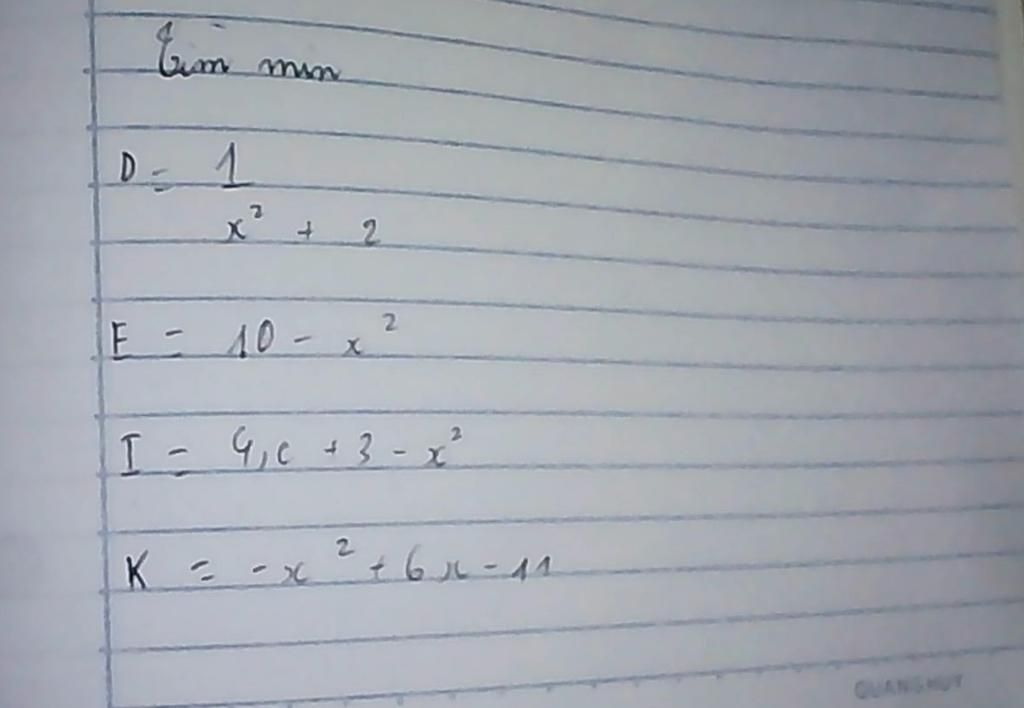 Tìm min
D = 1
x² + 2
E = 10 - x²
I = 4x + 3 - x²
K = -x² + 6x - 11
QUANGHUY